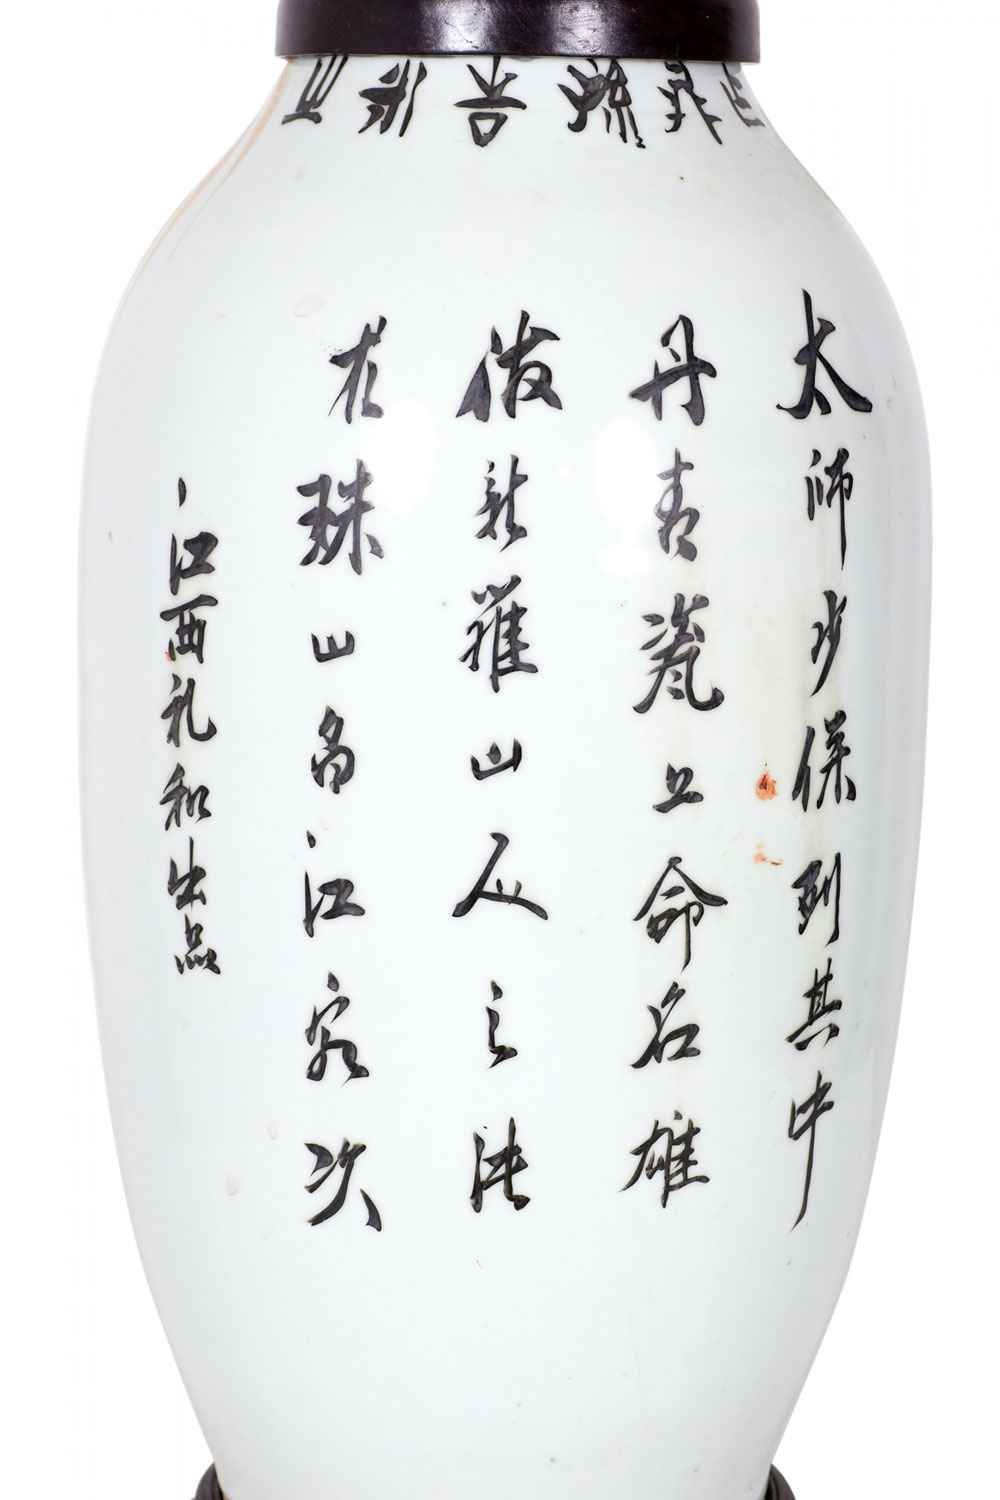 太師少保列其中
丹青瓷上命名雄
做新羅山人之法
於珠山昌江客次
江西礼和出品